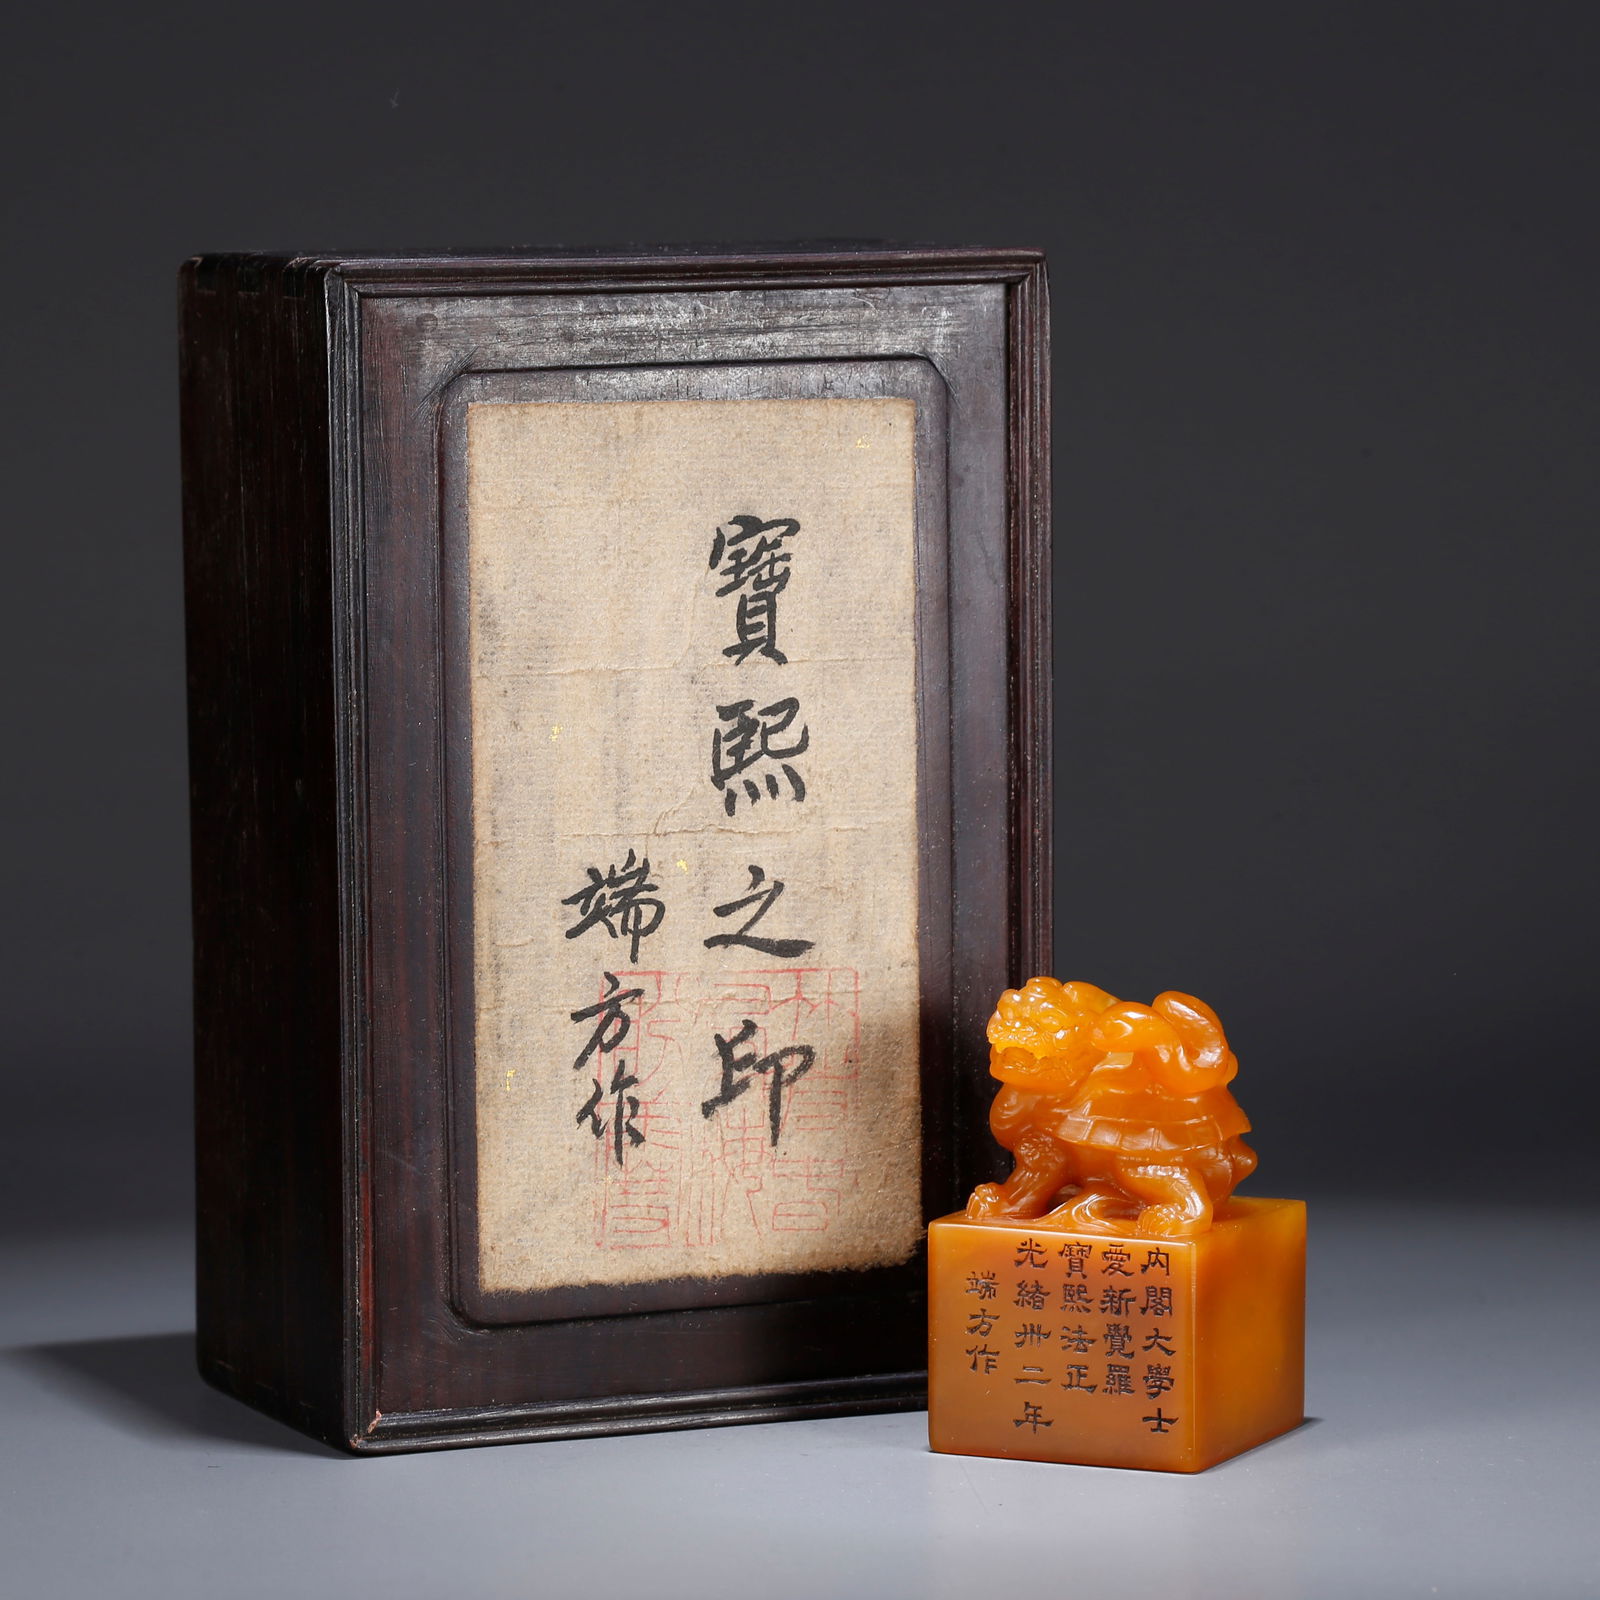 寶熙之印
端方作
内閣大學士
愛新覺羅
寶熙法正
光緒卅二年
端方作